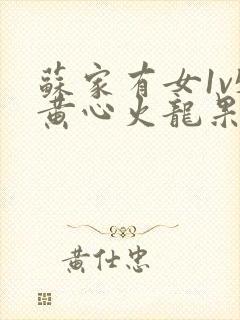 蘇家有女1v1
黃心火龍果
黃仕忠